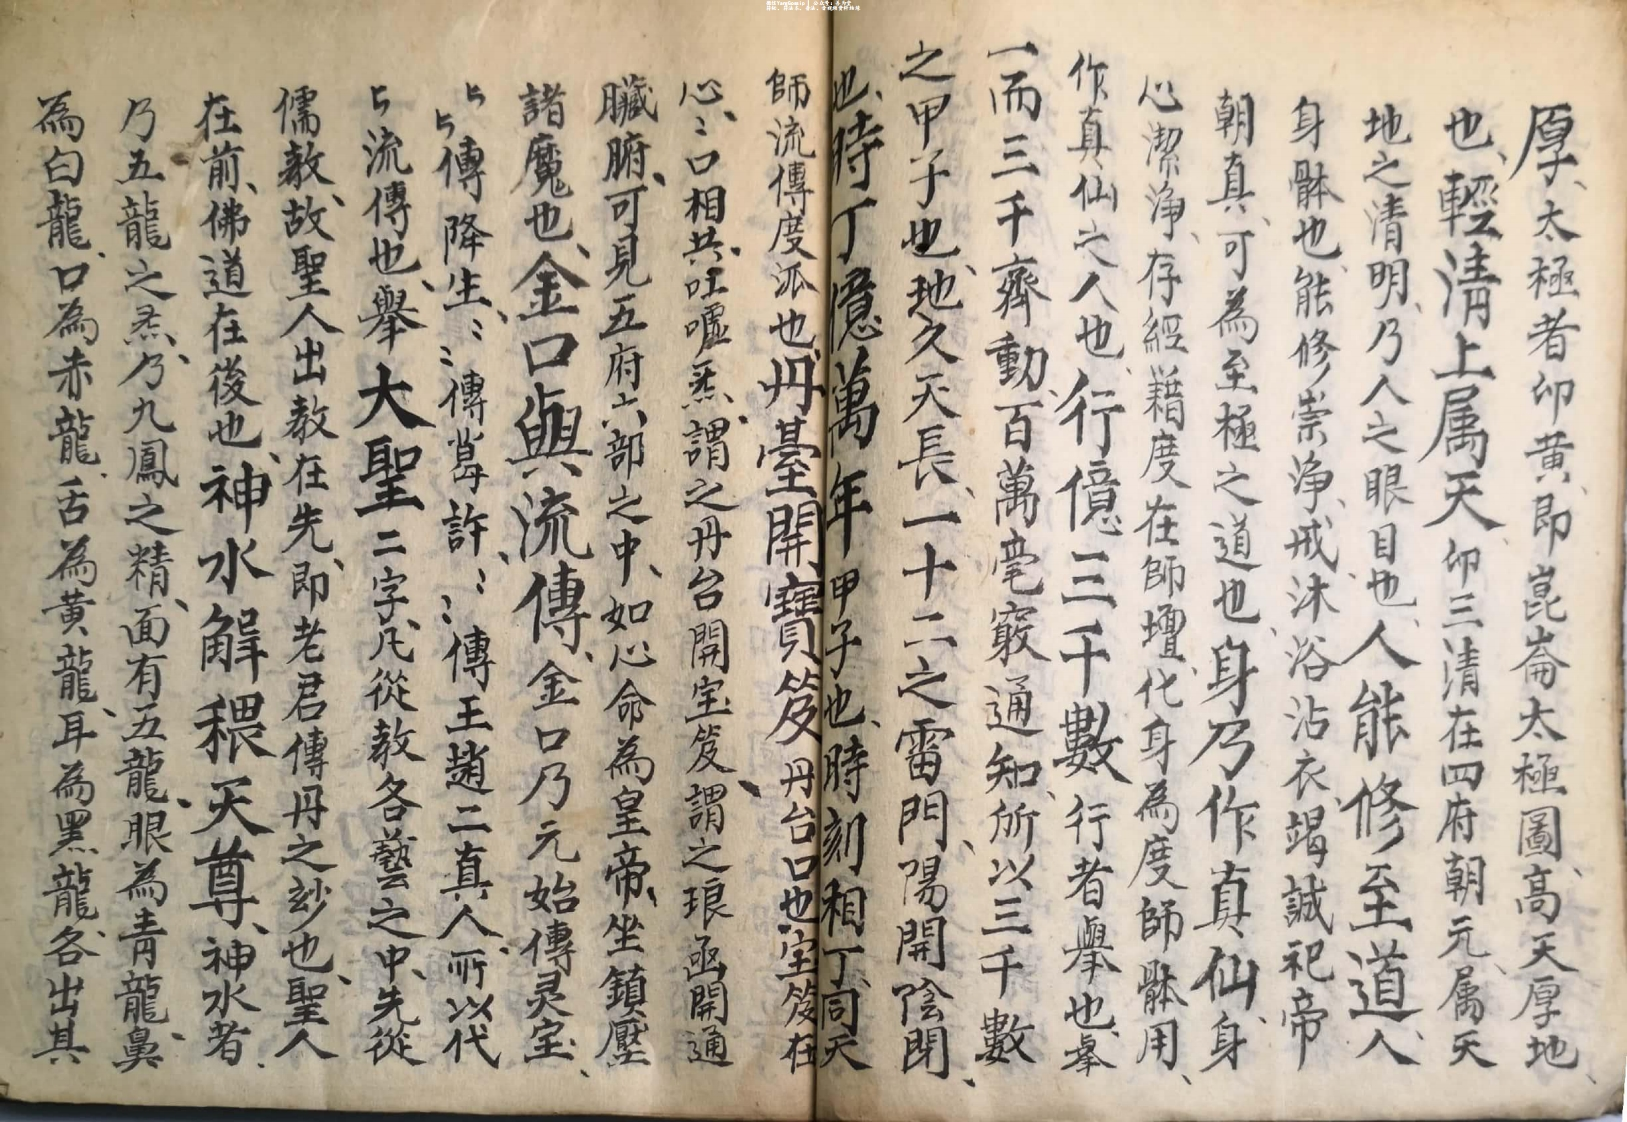 厚、太極者卯黃、即崑崙太極圖、高天厚地、
也、輕清上属天卯三清在四府朝元、属天
地之清明、乃人之眼目也、人能修至道人、
身骵也、能修崇净、戒沐浴沾衣、竭誠祀帝
朝真、可為至極之道也、身乃作真仙、身
心潔净、存經籍度在師壇、化身為度師骵用、
作真仙之人也、行億三千數行者舉也、舉
一而三千齊動、百萬毫竅通知、所以三千數
之甲子也、地久天長、一十二之雷門、陽開陰閉、
也、時丁億萬年甲子也、時刻相丁、同天
師流傳度派也、丹臺開寶笈、丹台口也、宝笈在
心、〻口相共、吐嘘炁、謂之丹台開宝笈、謂之琅函開通
臟腑、可見五府六部之中、如心命為皇帝、坐鎮壓
諸魔也、金口與流傳、金口乃元始傳灵宝、
〻〻傳降生、〻〻傳葛許、〻〻傳王趙二真人、所以代
〻流傳也、舉大聖二字、凡從教各藝之中、先從
儒教、故聖人出教在先、即老君傳丹之玅也、聖人
在前、佛道在後也、神水解穢天尊、神水者、
乃五龍之炁、乃九鳳之精、面有五龍、眼為青龍、鼻
為白龍、口為赤龍、舌為黃龍、耳為黑龍、各出其